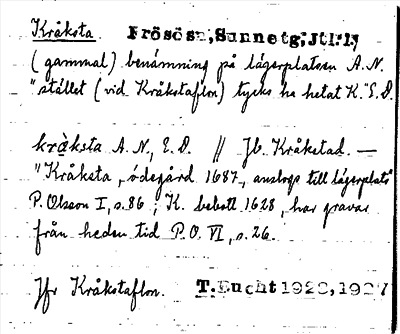 Kråksta. Frösösn, Sunne tg, Jtl.
(gammal) benämning på lägerplatsen A.N.
"stället (vid Kråkstaflon) tycks ha hetat K." E.O.
kråksta A.N, E.O. // Jb. Kråkstad. —
"Kråksta, ödegård 1687, anslogs till lägerplats"
P. Olsson I, s. 86; K. bebott 1628, har gravar
från heden tid P.O. VI, s. 26.
Jfr Kråkstaflon. T. Bucht 1920, 1927